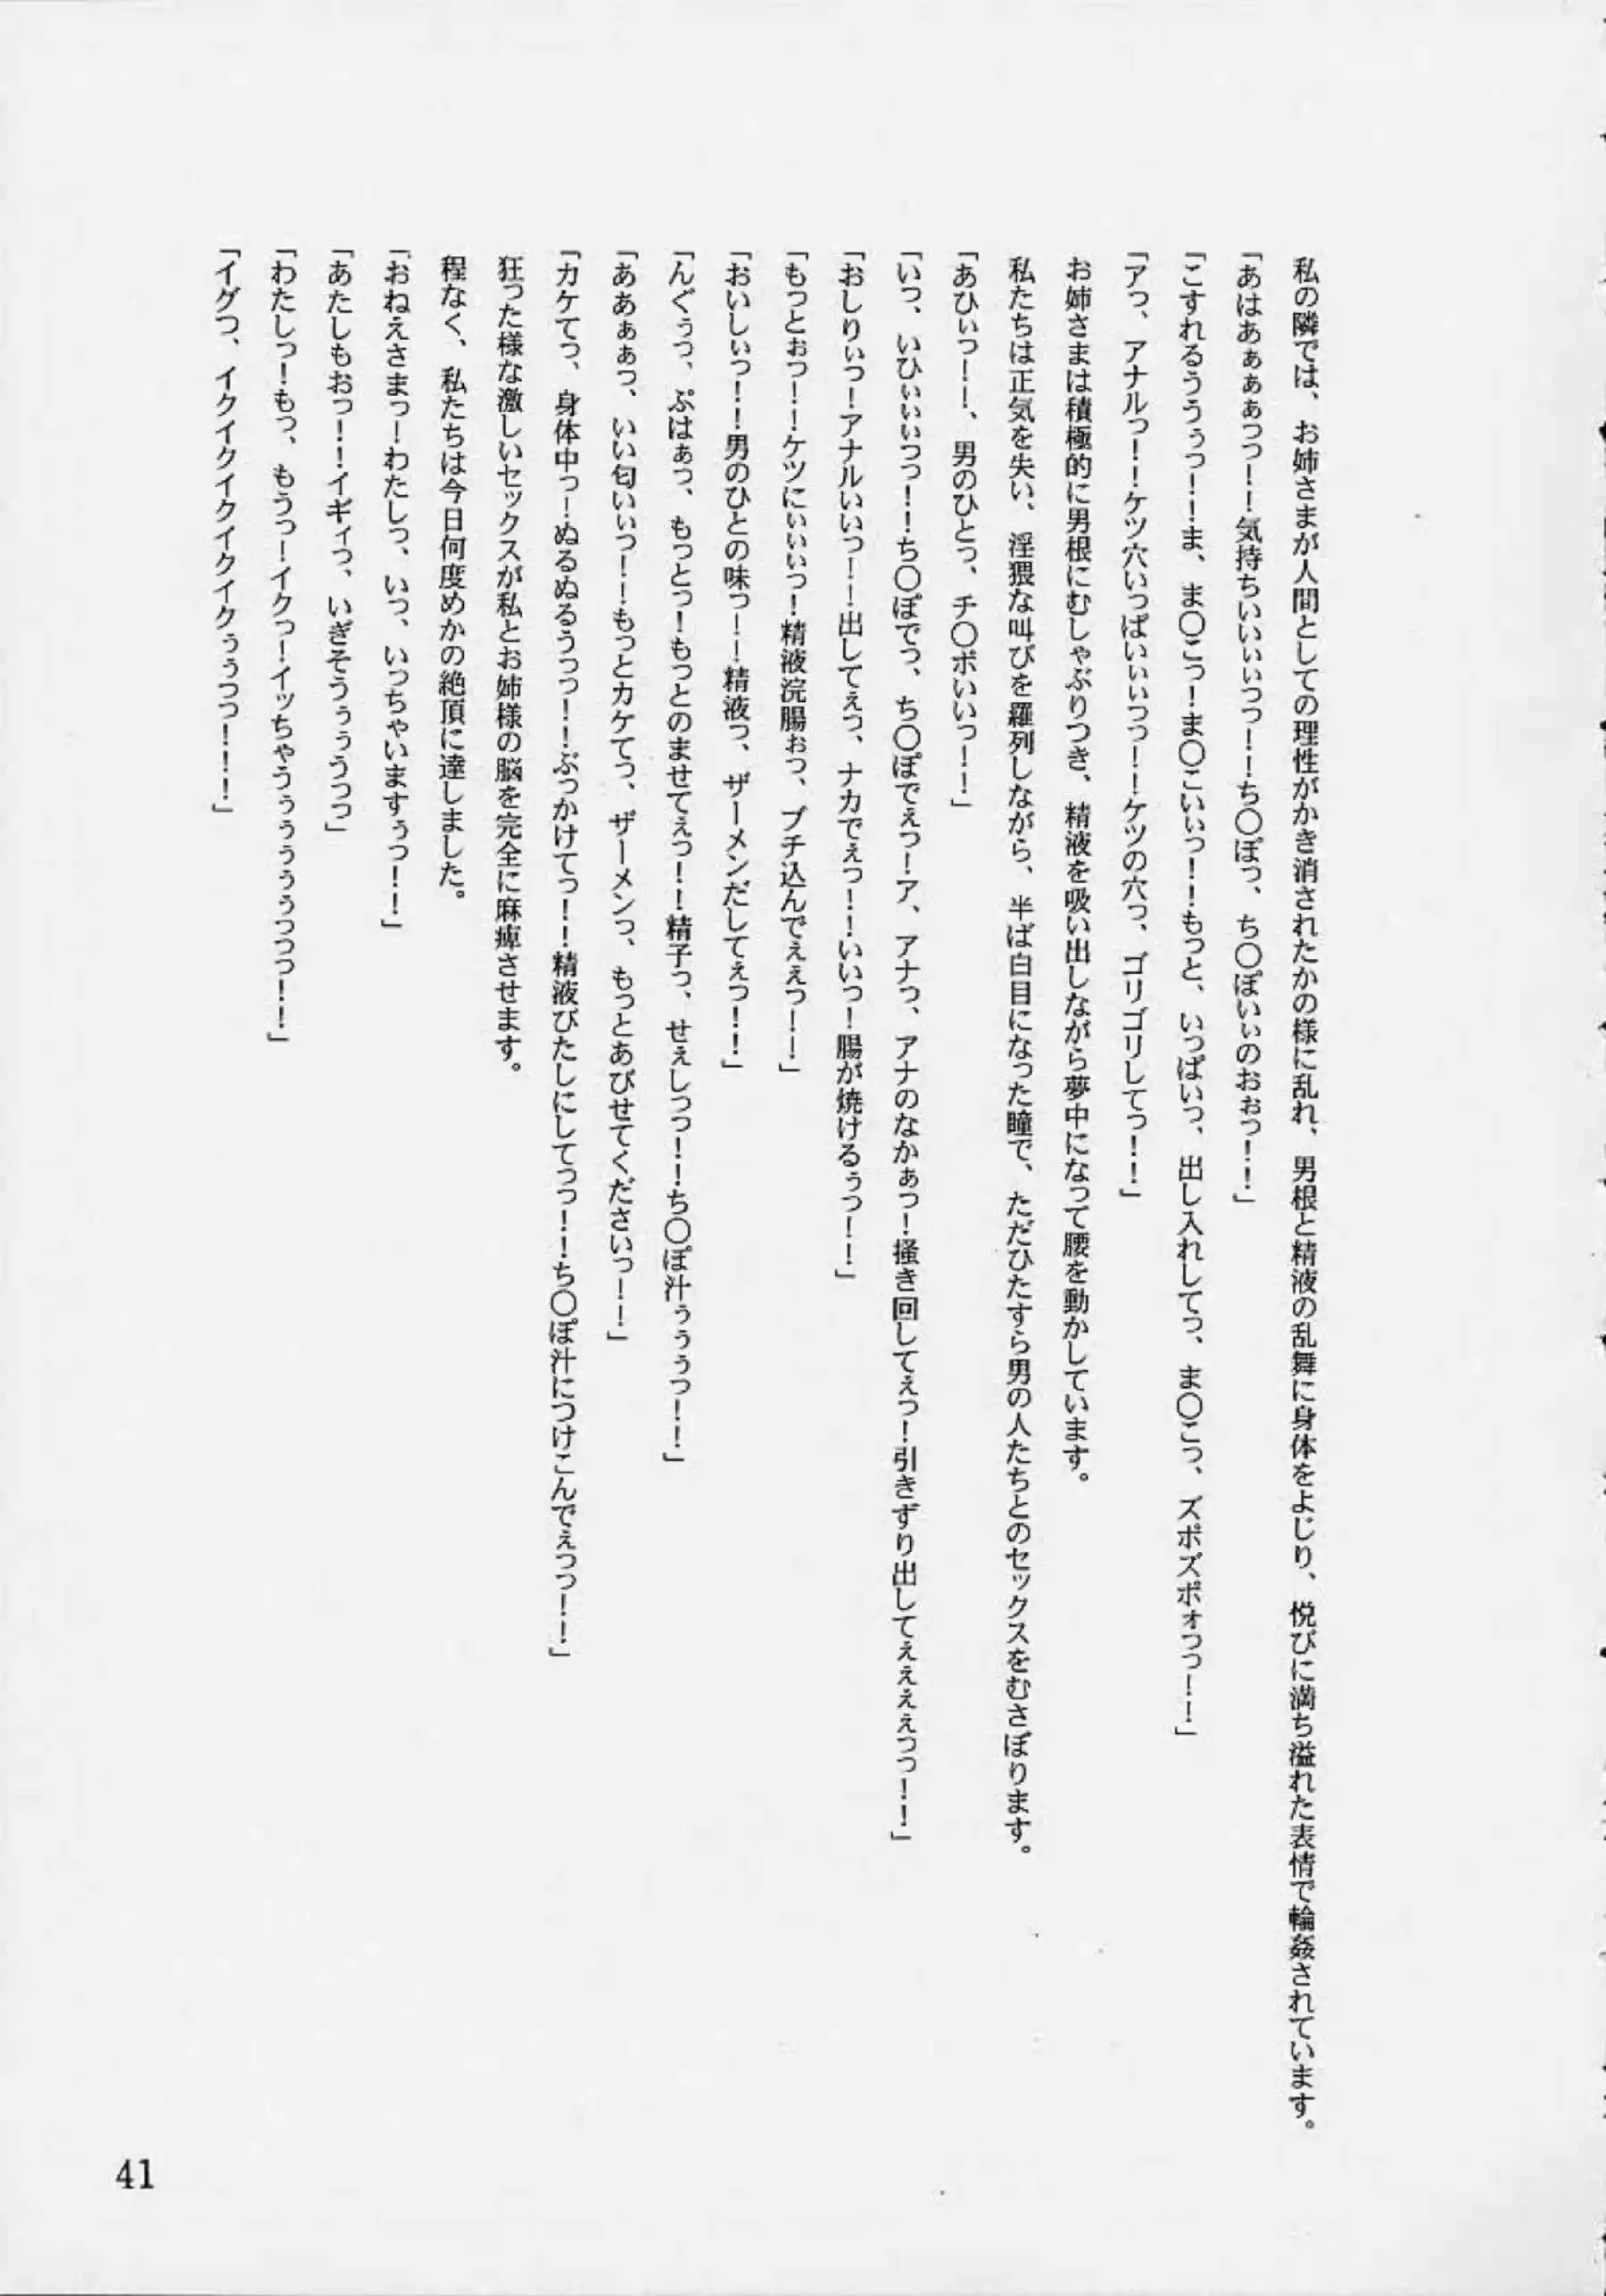 私の隣では、お姉さまが人間としての理性がかき消されたかの様に乱れ、男根と精液の乱舞に身体をよじり、悦びに満ち溢れた表情で輪姦されています。
「あはあぁぁぁっっ！！気持ちいいいぃっっ！！ち〇ぽっ、ち〇ぽいぃのおぉっ！！」
「こすれるううぅっ！！ま、ま〇こっ！ま〇こいぃっ！！もっと、いっぱいっ、出し入れしてっ、ま〇こっ、ズポズポォっっ！！」
「アっ、アナルっ！！ケツ穴いっぱいぃぃっっ！！ケツの穴っ、ゴリゴリしてっ！！」
お姉さまは積極的に男根にむしゃぶりつき、精液を吸い出しながら夢中になって腰を動かしています。
私たちは正気を失い、淫猥な叫びを羅列しながら、半ば白目になった瞳で、ただひたすら男の人たちとのセックスをむさぼります。
「あひぃっ！！、男のひとっ、チ〇ポいいっ！！」
「いっ、いひぃぃぃっっ！！ち〇ぽでっ、ち〇ぽでぇっ！ア、アナっ、アナのなかぁっ！掻き回してぇっ！引きずり出してぇぇぇぇっっ！！」
「おしりぃっ！アナルいいっ！！出してぇっ、ナカでぇっ！！いいっ！腸が焼けるぅっ！！」
「もっとぉっ！！ケツにぃぃぃっ！精液浣腸ぉっ、ブチ込んでぇぇっ！！」
「おいしぃっ！！男のひとの味っ！！精液っ、ザーメンだしてぇっ！！」
「んぐぅっ、ぷはぁっ、もっとっ！もっとのませてぇっ！！精子っ、せぇしっっ！！ち〇ぽ汁ぅぅぅっ！！」
「ああぁぁっ、いい匂いぃっ！！もっとカケてっ、ザーメンっ、もっとあびせてくださいっ！！」
「カケてっ、身体中っ！ぬるぬるうっっ！！ぶっかけてっ！！精液びたしにしてっっ！！ち〇ぽ汁につけこんでぇっっ！！」
狂った様な激しいセックスが私とお姉様の脳を完全に麻痺させます。
程なく、私たちは今日何度めかの絶頂に達しました。
「おねえさまっ！わたしっ、いっ、いっちゃいますぅっ！！」
「あたしもおっ！！イギィっ、いぎそうぅぅうっっ」
「わたしっ！もっ、もうっ！イクっ！イッちゃうぅぅぅぅぅっっっ！！」
「イグっ、イクイクイクイクイクぅぅっっ！！！」
41